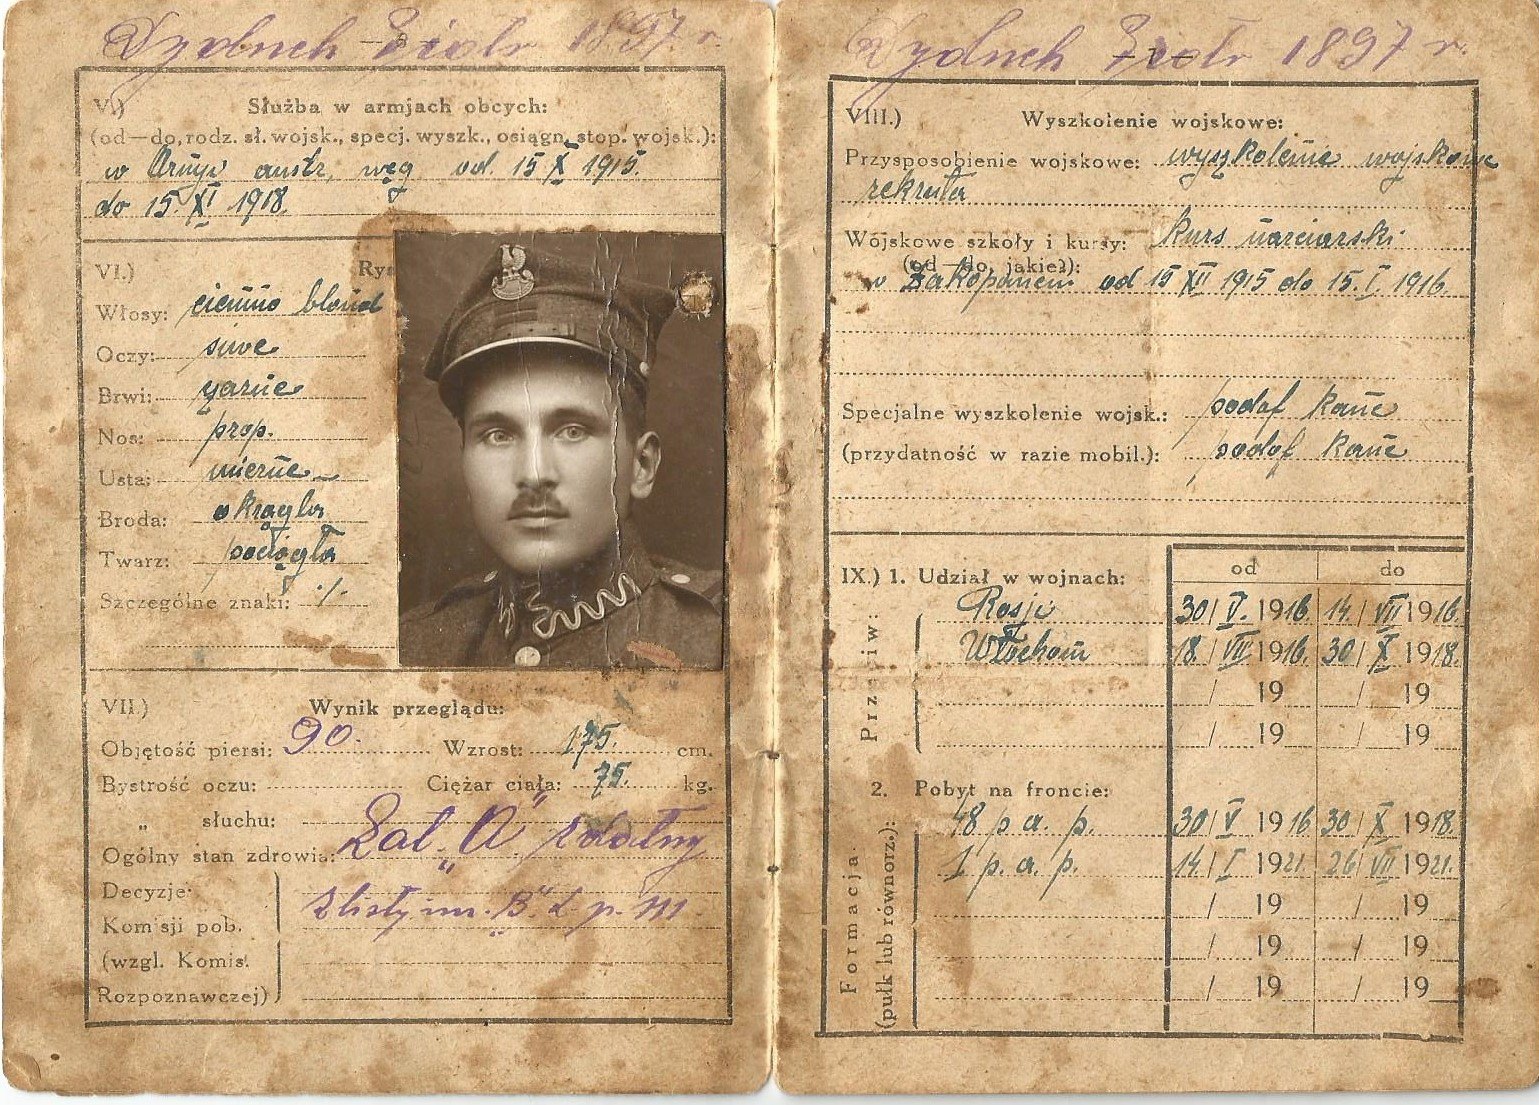 1897 r.
V.) Służba w armjach obcych:
(od—do, rodz. sł. wojsk., specj. wyszk., osiągn. stop. wojsk.):
w Armji austr. węg od 15 X 1915.
do 15. XI 1918.
VI.) Rys
Włosy: ciemno blond
Oczy: siwe
Brwi: czarne
Nos: prop.
Usta: mierne
Broda: okrągła
Twarz: pociągła
Szczególne znaki: ./.
VII.) Wynik przeglądu:
Objętość piersi: 90. Wzrost: 175. cm.
Bystrość oczu: Ciężar ciała: 75. kg.
„ słuchu:
Ogólny stan zdrowia: Kat. „A" zdolny
Decyzje
Komisji pob.
(wzgl. Komis.
Rozpoznawczej)
1897 r.
VIII.) Wyszkolenie wojskowe:
Przysposobienie wojskowe: wyszkolenie wojskowe
rekruta
Wojskowe szkoły i kursy: kurs narciarski
(od—do, jakie?):
w Zakopanem od 15 XII 1915 do 15. I. 1916.
Specjalne wyszkolenie wojsk.: podof kanc
(przydatność w razie mobil.): podof kanc
IX.) 1. Udział w wojnach: od do
Przeciw:
Rosji 30/ V. 1916. 14./ VII 1916.
Włochom 18./ VII 1916. 30/ X 1918.
/ 19 / 19
/ 19 / 19
2. Pobyt na froncie:
Formacja (pułk lub równorz.):
48 p. a. p. 30/ V 1916 30/ X 1918.
1 p. a. p. 14./ I 1921. 26/ VII 1921.
/ 19 / 19
/ 19 / 19
/ 19 / 19